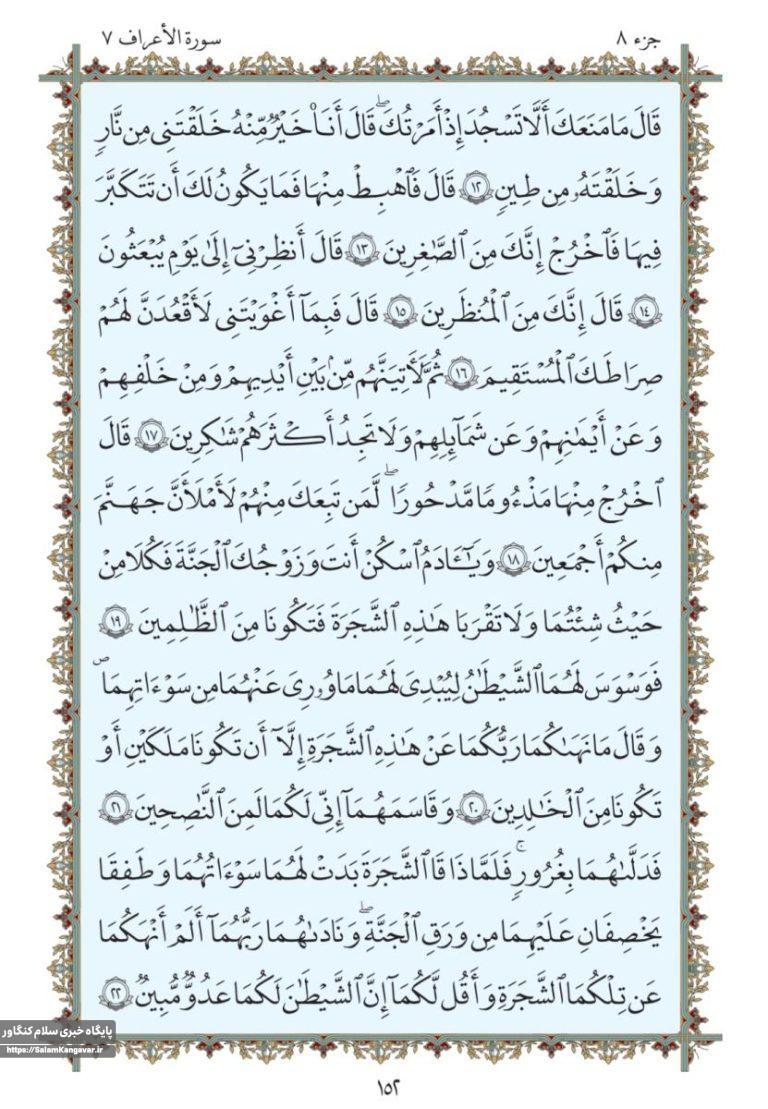 جزء ٨
سورة الأعراف ٧
قَالَ مَا مَنَعَكَ أَلَّا تَسْجُدَ إِذْ أَمَرْتُكَ ۖ قَالَ أَنَا۠ خَيْرٌ مِّنْهُ خَلَقْتَنِى مِن نَّارٍ
وَخَلَقْتَهُۥ مِن طِينٍ ١٢ قَالَ فَٱهْبِطْ مِنْهَا فَمَا يَكُونُ لَكَ أَن تَتَكَبَّرَ
فِيهَا فَٱخْرُجْ إِنَّكَ مِنَ ٱلصَّٰغِرِينَ ١٣ قَالَ أَنظِرْنِىٓ إِلَىٰ يَوْمِ يُبْعَثُونَ
١٤ قَالَ إِنَّكَ مِنَ ٱلْمُنظَرِينَ ١٥ قَالَ فَبِمَآ أَغْوَيْتَنِى لَأَقْعُدَنَّ لَهُمْ
صِرَٰطَكَ ٱلْمُسْتَقِيمَ ١٦ ثُمَّ لَأَتِيَنَّهُم مِّنۢ بَيْنِ أَيْدِيهِمْ وَمِنْ خَلْفِهِمْ
وَعَنْ أَيْمَٰنِهِمْ وَعَن شَمَآئِلِهِمْ وَلَا تَجِدُ أَكْثَرَهُمْ شَٰكِرِينَ ١٧ قَالَ
ٱخْرُجْ مِنْهَا مَذْءُومًا مَّدْحُورًا ۖ لَّمَن تَبِعَكَ مِنْهُمْ لَأَمْلَأَنَّ جَهَنَّمَ
مِنكُمْ أَجْمَعِينَ ١٨ وَيَٰٓـَٔادَمُ ٱسْكُنْ أَنتَ وَزَوْجُكَ ٱلْجَنَّةَ فَكُلَا مِنْ
حَيْثُ شِئْتُمَا وَلَا تَقْرَبَا هَٰذِهِ ٱلشَّجَرَةَ فَتَكُونَا مِنَ ٱلظَّٰلِمِينَ ١٩
فَوَسْوَسَ لَهُمَا ٱلشَّيْطَٰنُ لِيُبْدِىَ لَهُمَا مَا وُۥرِىَ عَنْهُمَا مِن سَوْءَٰتِهِمَا
وَقَالَ مَا نَهَىٰكُمَا رَبُّكُمَا عَنْ هَٰذِهِ ٱلشَّجَرَةِ إِلَّآ أَن تَكُونَا مَلَكَيْنِ أَوْ
تَكُونَا مِنَ ٱلْخَٰلِدِينَ ٢٠ وَقَاسَمَهُمَآ إِنِّى لَكُمَا لَمِنَ ٱلنَّٰصِحِينَ ٢١
فَدَلَّىٰهُمَا بِغُرُورٍ ۚ فَلَمَّا ذَاقَا ٱلشَّجَرَةَ بَدَتْ لَهُمَا سَوْءَٰتُهُمَا وَطَفِقَا
يَخْصِفَانِ عَلَيْهِمَا مِن وَرَقِ ٱلْجَنَّةِ ۖ وَنَادَىٰهُمَا رَبُّهُمَآ أَلَمْ أَنْهَكُمَا
عَن تِلْكُمَا ٱلشَّجَرَةِ وَأَقُل لَّكُمَآ إِنَّ ٱلشَّيْطَٰنَ لَكُمَا عَدُوٌّ مُّبِينٌ ٢٢
پایگاه خبری سلام کنگاور
https://SalamKangavar.ir
١٥٢